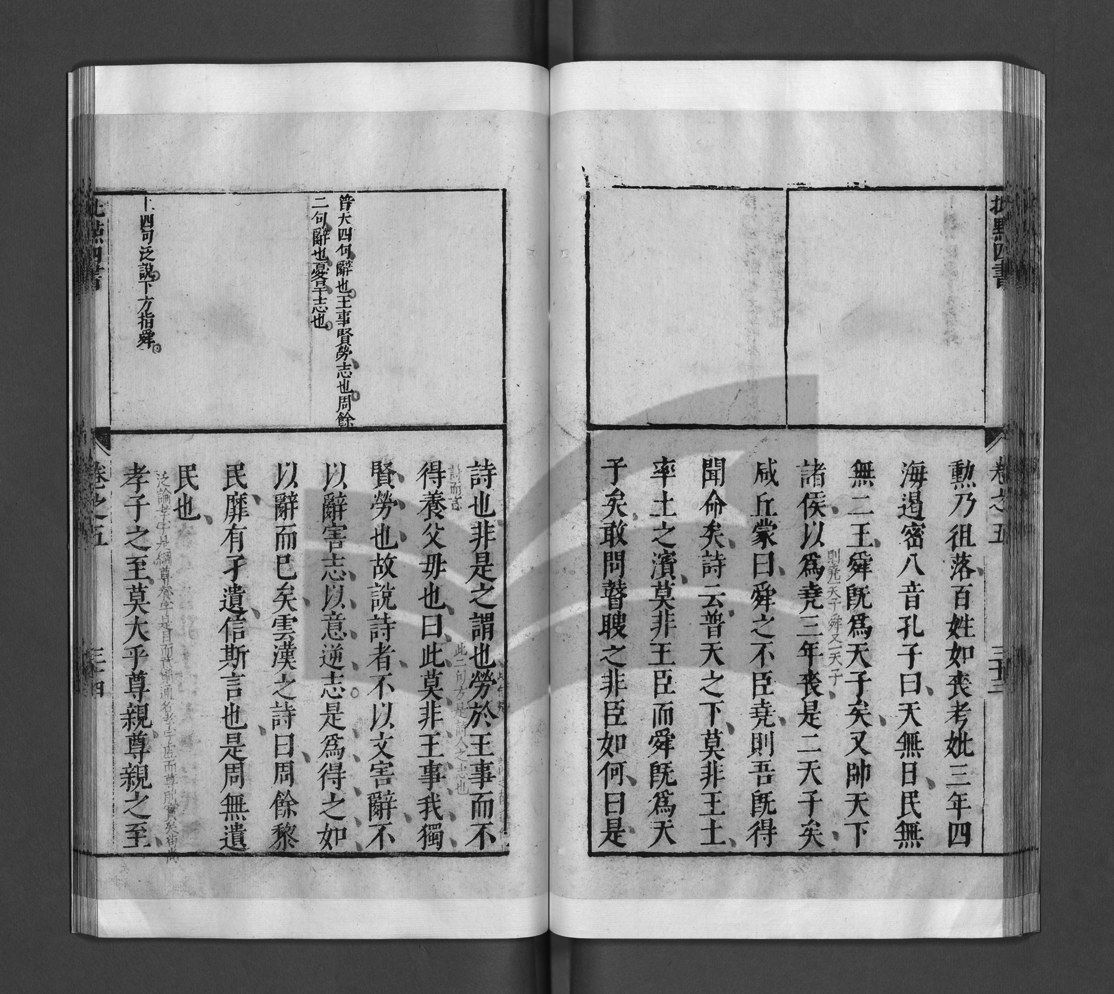 批點四書
卷之五
三十三
勲乃徂落百姓如喪考妣三年四
海遏密八音孔子曰天無二日民無
無二王舜旣爲天子矣又帥天下
則堯一天子舜又一天子
諸侯以爲堯三年喪是二天子矣
咸丘蒙曰舜之不臣堯則吾旣得
聞命矣詩云普天之下莫非王土
率土之濱莫非王臣而舜旣爲天
子矣敢問瞽䏂之非臣如何曰是
普天四句辭也王事賢勞志也周餘
二句辭也憂旱志也
上四句泛說下方指舜
詩也非是之謂也勞於王事而不
得養父母也曰此莫非王事我獨
賢勞也故說詩者不以文害辭不
以辭害志以意逆志是爲得之如
以辭而已矣雲漢之詩曰周餘黎
民靡有孑遺信斯言也是周無遺
民也
孝子之至莫大乎尊親尊親之至
批點四書
卷之五
三十四